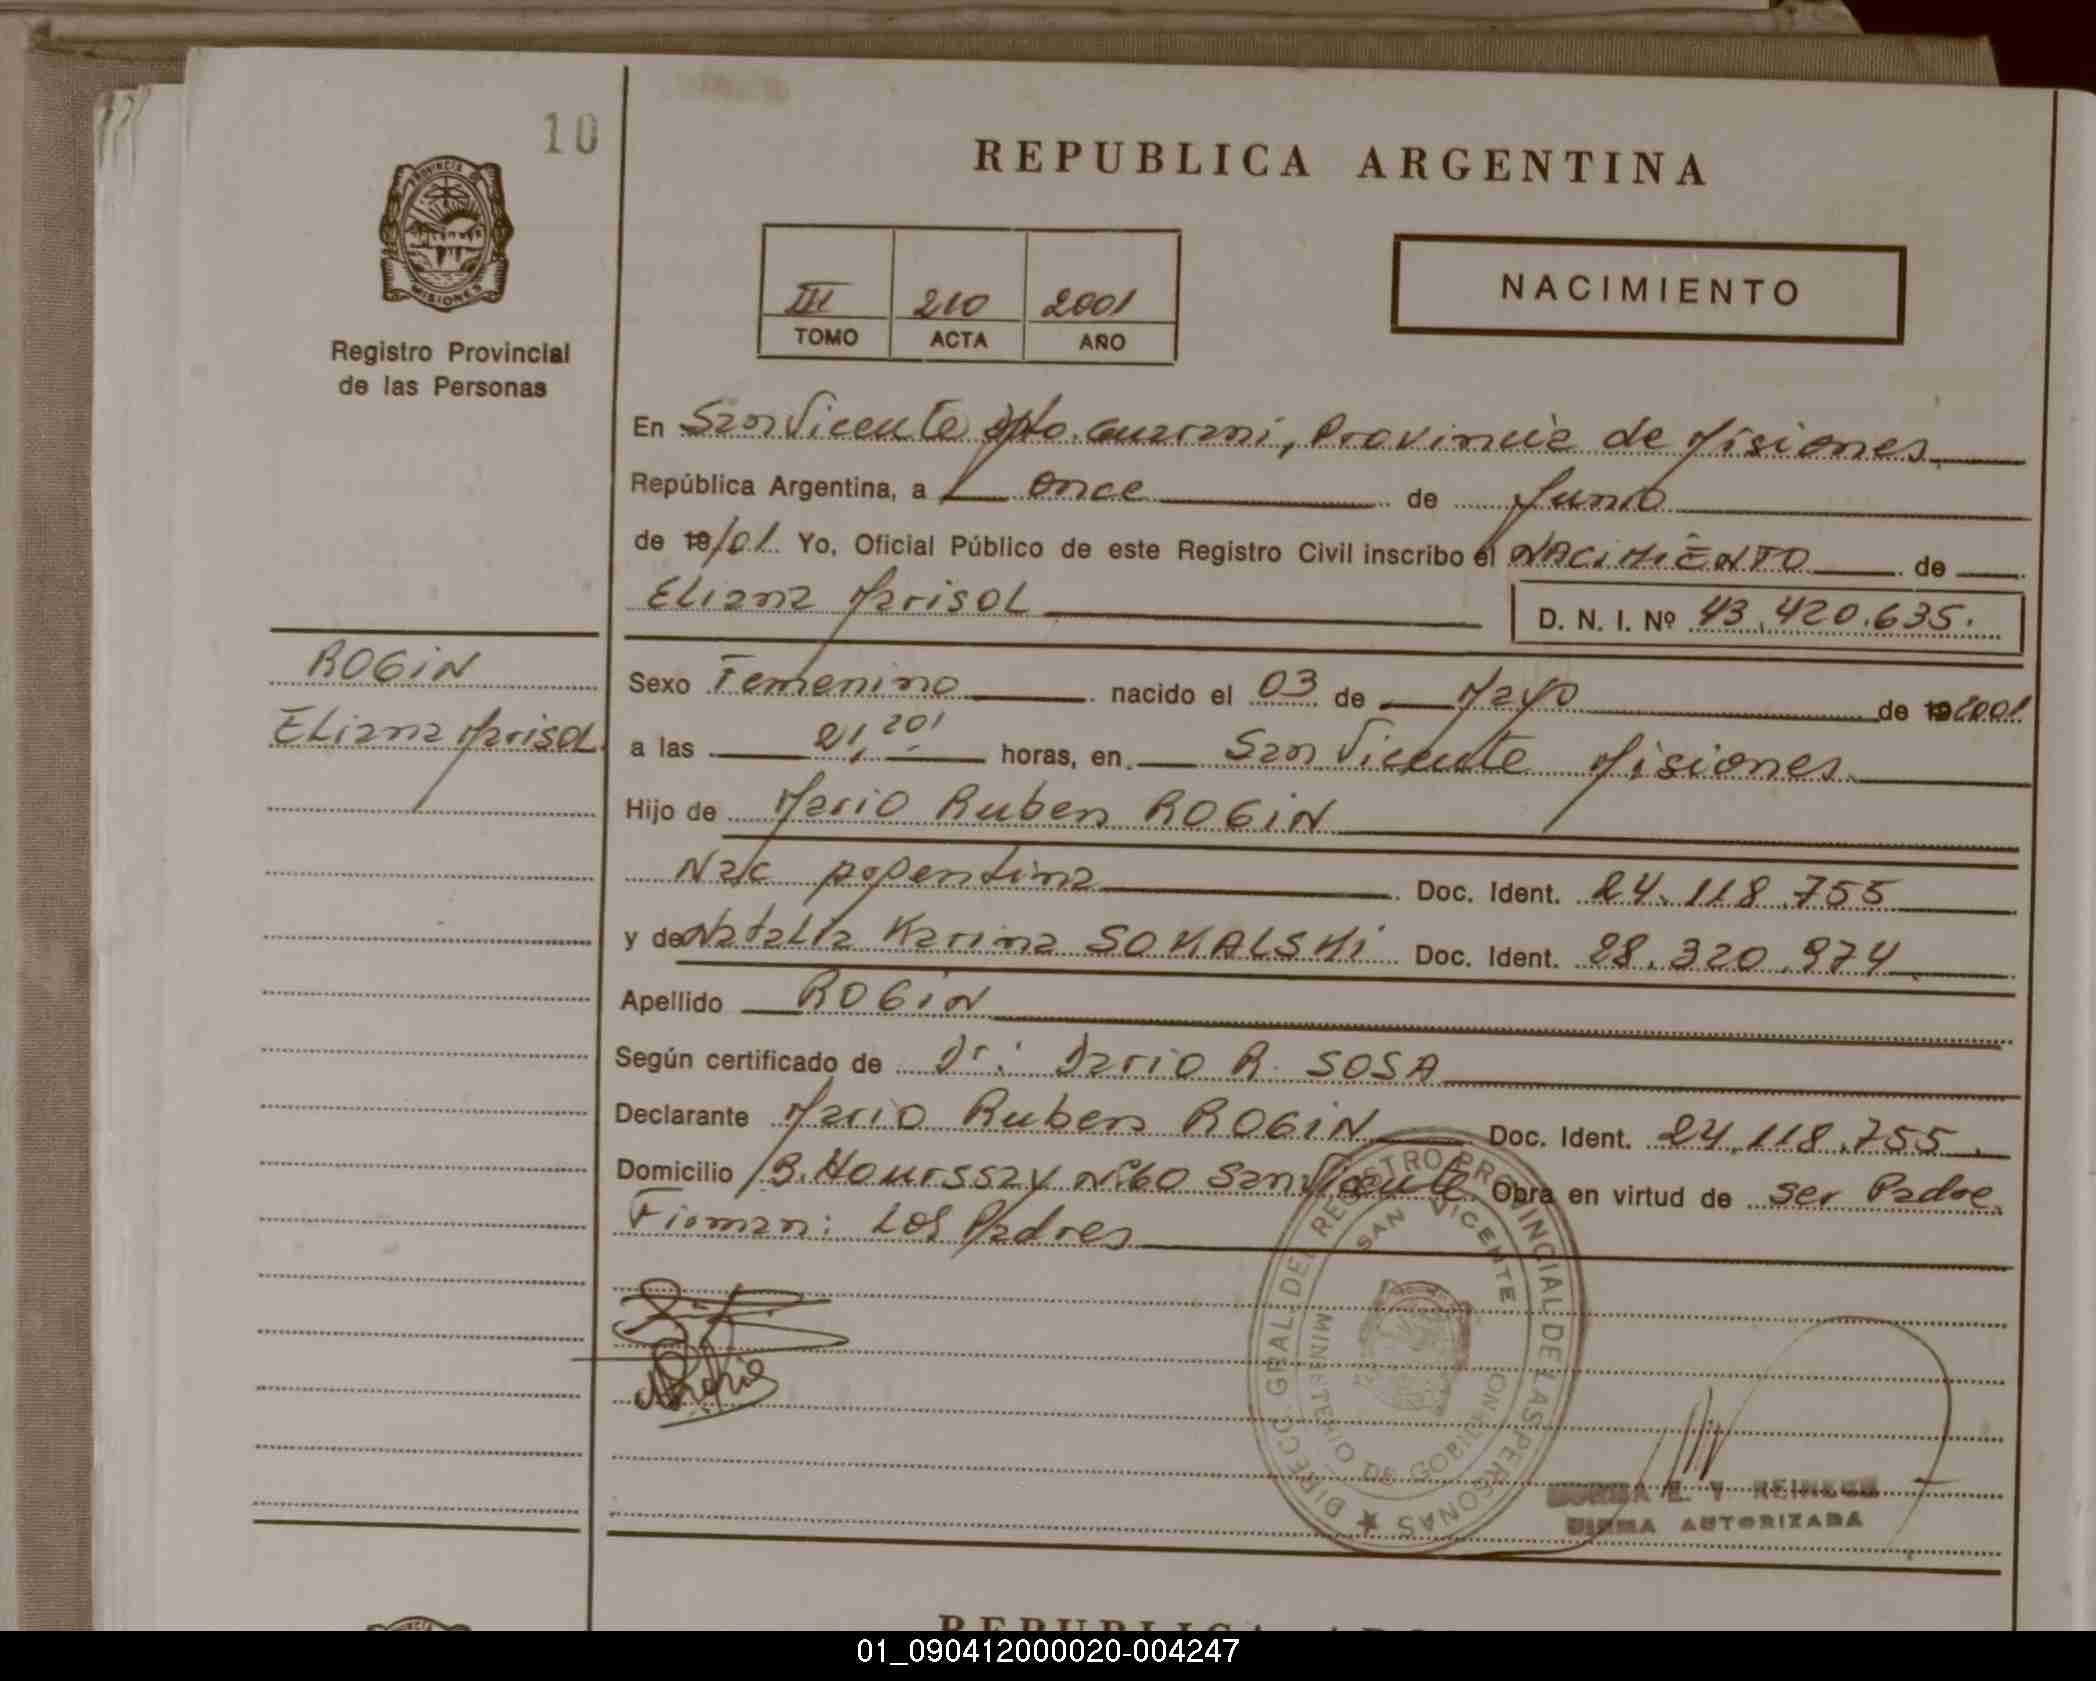 10
REPUBLICA ARGENTINA
PROVINCIA DE
MISIONES
Registro Provincial
de las Personas
III 210 2001
TOMO ACTA AÑO
NACIMIENTO
En San Vicente Dpto. Guarani, Provincia de Misiones
República Argentina, a once de Junio
de 19/01. Yo, Oficial Público de este Registro Civil inscribo el NACIMIENTO de
Eliana Marisol D. N. I. Nº 43.420.635.
ROGIN
Eliana Marisol
Sexo Femenino nacido el 03 de Mayo de 19 2001
a las 21,20' horas, en San Vicente Misiones
Hijo de Mario Ruben ROGIN
Nac argentina Doc. Ident. 24.118.755
y de Natalia Karina SOKALSKI Doc. Ident. 28.320.974
Apellido ROGIN
Según certificado de Dr: Dario R. SOSA
Declarante Mario Ruben ROGIN Doc. Ident. 24.118.755.
Domicilio B. Hourssay Nº60 San Vicente Obra en virtud de ser Padre.
Firman: Los Padres
DIRECC. GRAL. DEL REGISTRO PROVINCIAL DE LAS PERSONAS
SAN VICENTE
MINISTERIO DE GOBIERNO
FIRMA AUTORIZADA
REPUBLICA
01_090412000020-004247